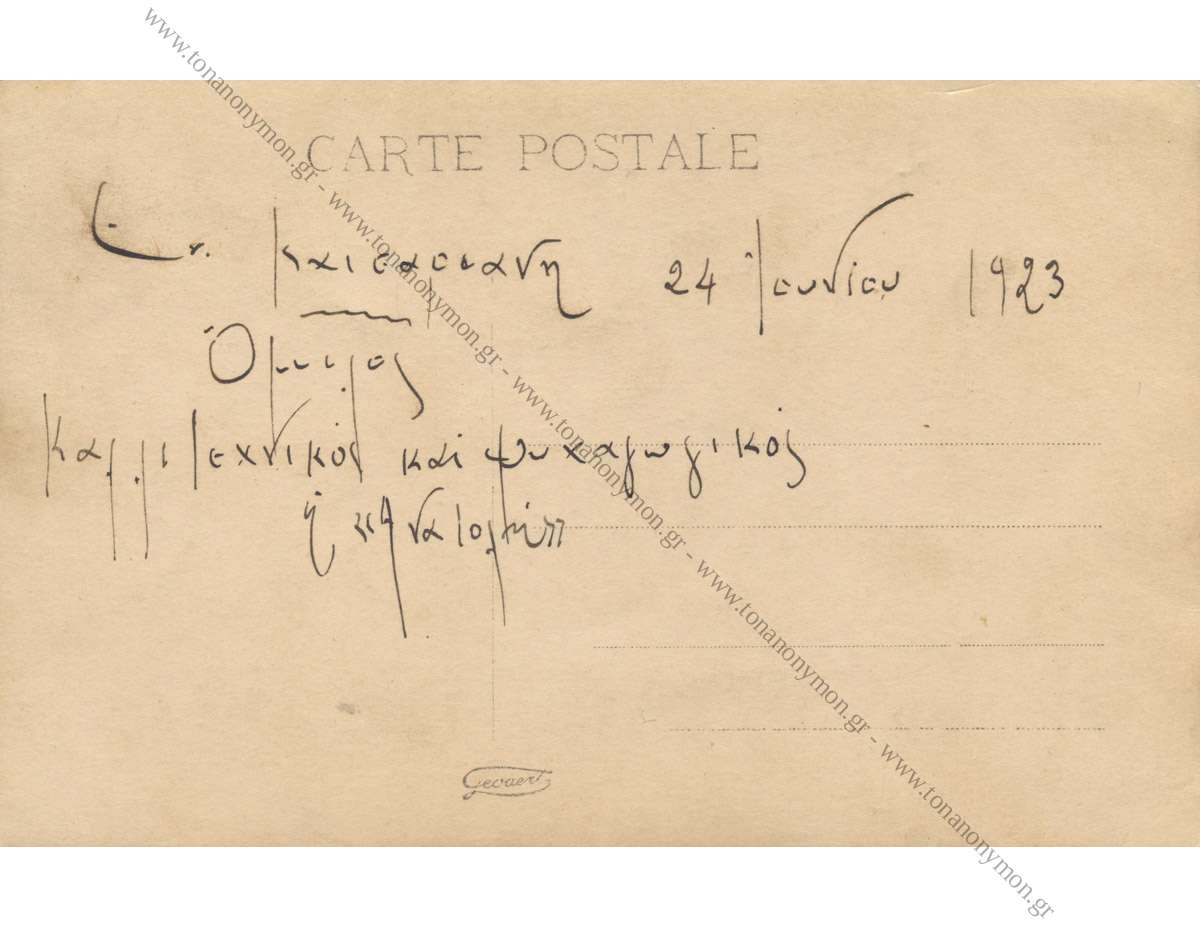 CARTE POSTALE
Ἐν. Καισαριανῇ 24 Ἰουνίου 1923
Ὅμιλος
Καλλιτεχνικὸς καὶ ψυχαγωγικὸς
ἡ "Ἀνατολὴ"
Gevaert
www.tonanonymon.gr - www.tonanonymon.gr - www.tonanonymon.gr - www.tonanonymon.gr - www.tonanonymon.gr